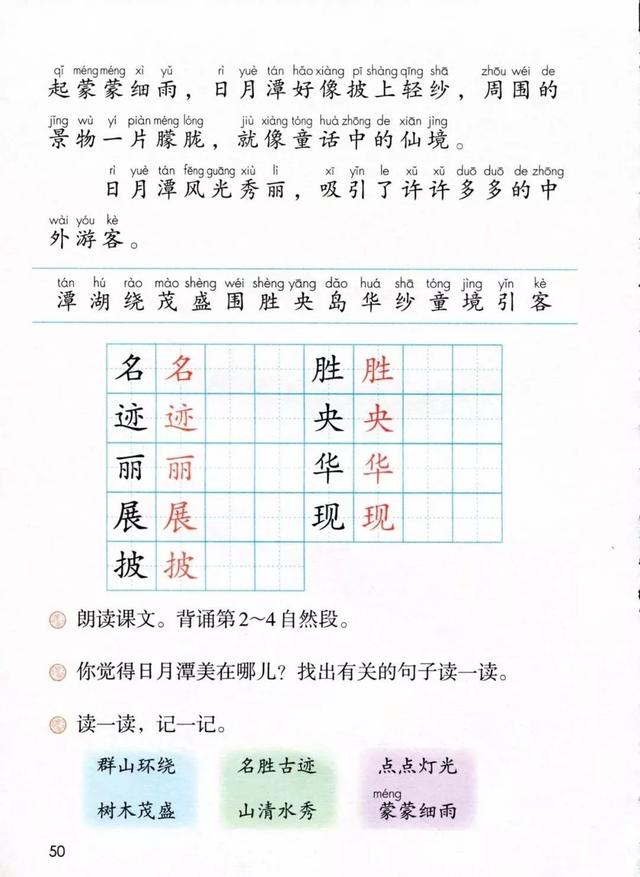 qǐ méng méng xì yǔ rì yuè tán hǎo xiàng pī shàng qīng shā zhōu wéi de
起蒙蒙细雨，日月潭好像披上轻纱，周围的
jǐng wù yí piàn méng lóng jiù xiàng tóng huà zhōng de xiān jìng
景物一片朦胧，就像童话中的仙境。
rì yuè tán fēng guāng xiù lì xī yǐn le xǔ xǔ duō duō de zhōng
日月潭风光秀丽，吸引了许许多多的中
wài yóu kè
外游客。
tán hú rào mào shèng wéi shèng yāng dǎo huá shā tóng jìng yǐn kè
潭湖绕茂盛围胜央岛华纱童境引客
名名 胜胜
迹迹 央央
丽丽 华华
展展 现现
披披
朗读课文。背诵第2～4自然段。
你觉得日月潭美在哪儿？找出有关的句子读一读。
读一读，记一记。
群山环绕 名胜古迹 点点灯光
méng
树木茂盛 山清水秀 蒙蒙细雨
50